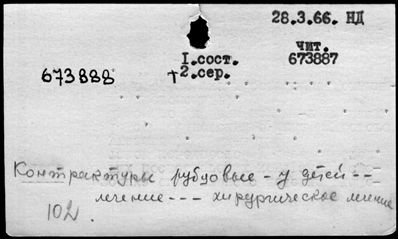 28.3.66. НД
1.сост. чит.
673888 †2.сер. 673887
Контрактуры рубцовые - у детей --
лечение --- хирургическое лечение
102.